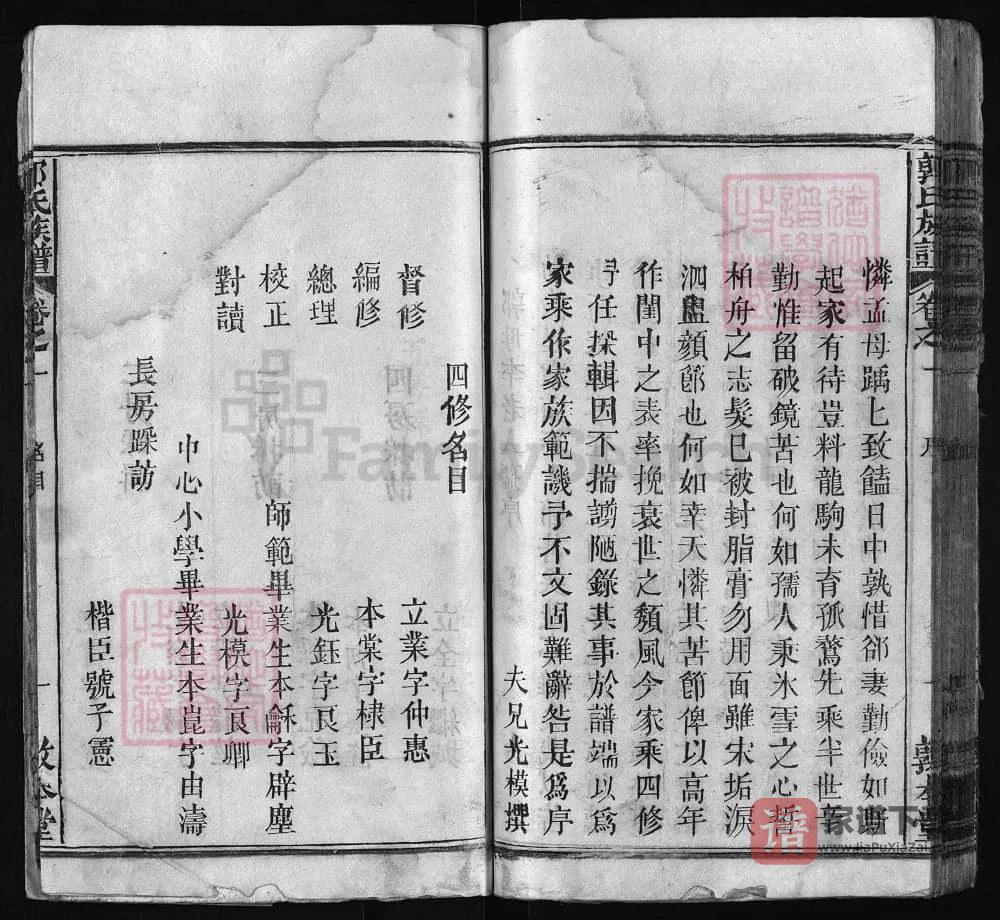 郭氏族譜
卷之一
序
一
敦本堂
憐孟母踽匕致饁日中孰惜郤妻勤儉如斯
起家有待豈料龍駒未育孤鶩先乘半世辛
勤惟留破鏡苦也何如孺人秉氷雪之心誓
柏舟之志髮已被封脂膏勿用面雖朱垢淚
泗盥顏郎也何如幸天憐其苦節俾以高年
作閨中之表率挽衰世之頹風今家乘四修
予任採輯因不揣謭陋錄其事於譜端以為
家乘作家族範譏予不文固難辭咎是為序
夫兄光模撰
四修名目
督修
立業字仲惠
編修
本棠字棣臣
總理
光鈺字良玉
校正
師範畢業生本龢字辟塵
對讀
光模字良卿
中心小學畢業生本崑字由濤
長房踩訪
楷臣號子憲
郭氏族譜
卷之一
名目
一
敦本堂
FamilySearch
譜
家谱下载
www.JiaPuXiaZai.com